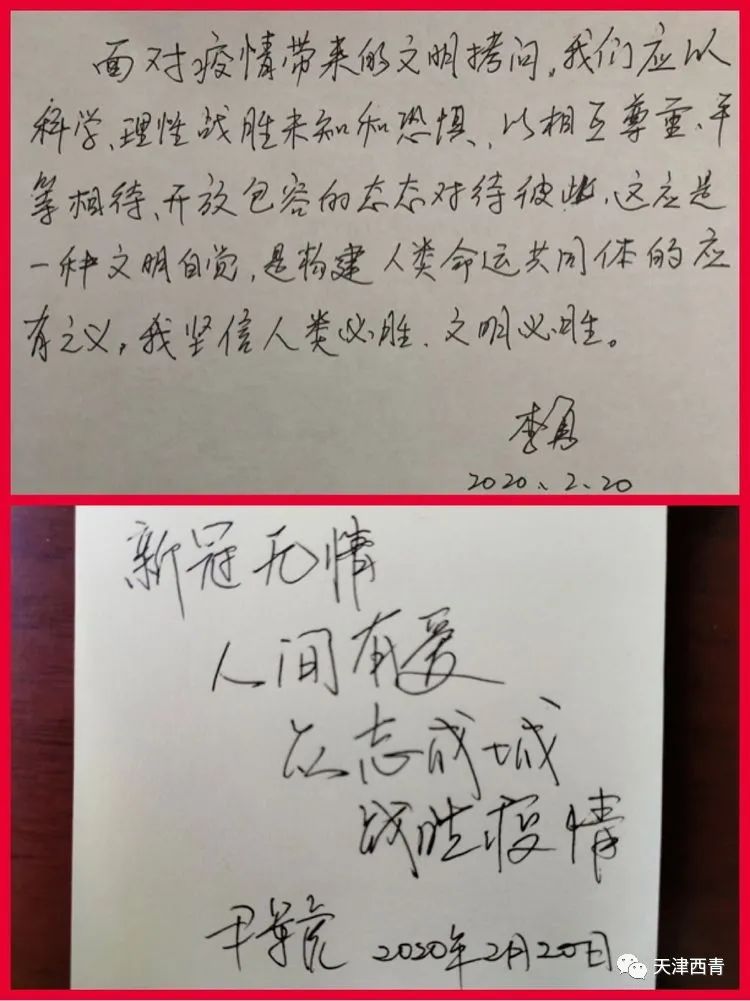 面对疫情带来的文明拷问，我们应以
科学、理性战胜未知和恐惧、以相互尊重、平
等相待、开放包容的态态对待彼此，这应是
一种文明自觉，是构建人类命运共同体的应
有之义，我坚信人类必胜、文明必胜。
李
2020、2、20
新冠无情
人间有爱
众志成城
战胜疫情
尹 2020年2月20日
天津西青